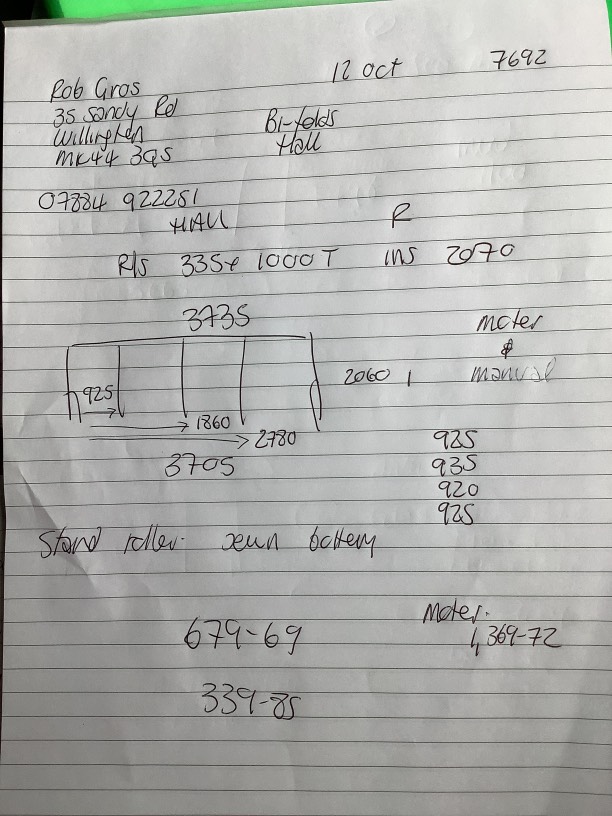 12 Oct 7692
Rob Gros
35 Sandy Rd
Willington
MK44 3QS
Bi-folds
Hall
07884 922251
HALL R
R/S 335x 1000 T INS 2070
3735
925
1860
2780
3705
2060 1
Moter
&
manual
925
935
920
925
Stand roller. battery
679-69
339-85
Moter.
1,369-72